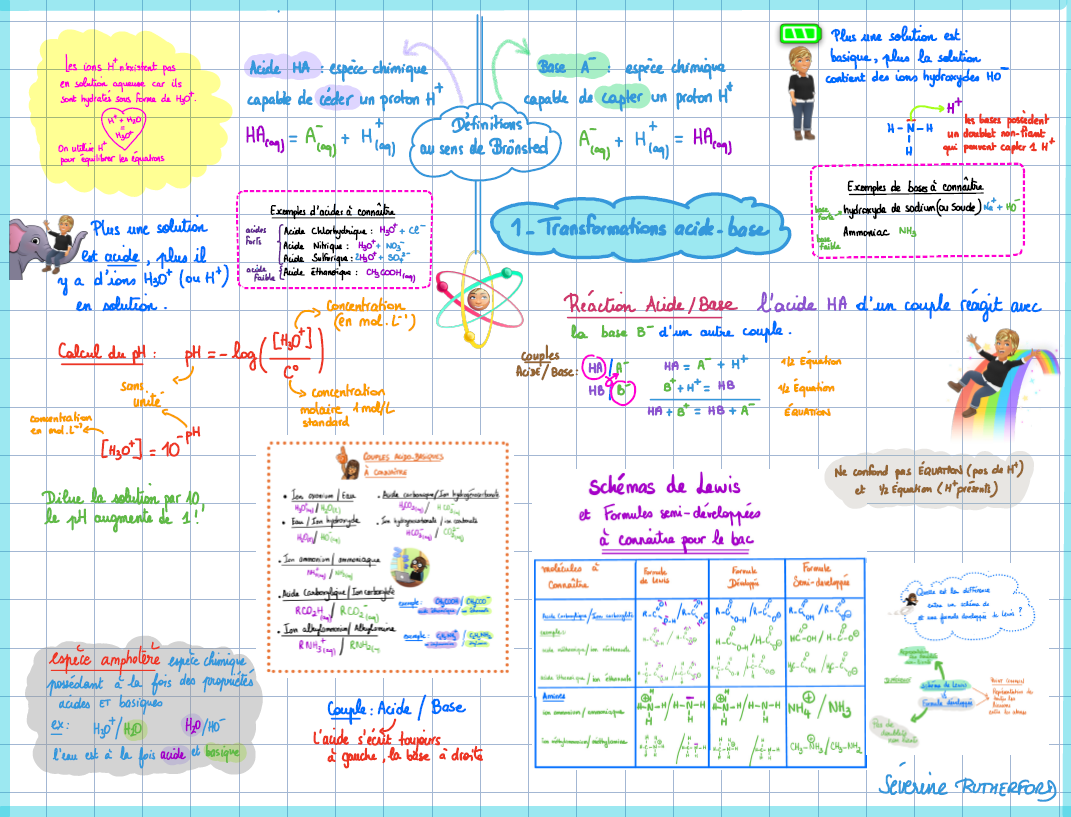 Les ions H⁺ n'existent pas
en solution aqueuse car ils
sont hydratés sous forme de H₃O⁺.
H⁺ + H₂O
=
H₃O⁺
On utilise H⁺
pour équilibrer les équations
Acide HA : espèce chimique
capable de céder un proton H⁺
HA(aq) = A⁻(aq) + H⁺(aq)
Définitions
au sens de Brönsted
Base A⁻ : espèce chimique
capable de capter un proton H⁺
A⁻(aq) + H⁺(aq) = HA(aq)
Plus une solution est
basique, plus la solution
contient des ions hydroxydes HO⁻
H⁺
H - N - H
H
les bases possèdent
un doublet non-liant
qui peuvent capter 1 H⁺
Exemples de bases à connaître
base forte hydroxyde de sodium (ou Soude) Na⁺ + HO⁻
base faible Ammoniac NH₃
Plus une solution
est acide, plus il
y a d'ions H₃O⁺ (ou H⁺)
en solution.
Exemples d'acides à connaître
acides forts
Acide Chlorhydrique : H₃O⁺ + Cl⁻
Acide Nitrique : H₃O⁺ + NO₃⁻
Acide Sulfurique : 2H₃O⁺ + SO₄²⁻
acide faible
Acide éthanoïque : CH₃COOH(aq)
1 - Transformations acide-base
Réaction Acide/Base l'acide HA d'un couple réagit avec
la base B⁻ d'un autre couple.
Couples
Acide/Base :
HA / A⁻
HB / B⁻
HA = A⁻ + H⁺ 1/2 Équation
B⁺ + H⁺ = HB 1/2 Équation
HA + B⁺ = HB + A⁻ ÉQUATION
Ne confond pas ÉQUATION (pas de H⁺)
et 1/2 Équation (H⁺ présents)
Concentration
(en mol.L⁻¹)
Calcul du pH : pH = - log ( [H₃O⁺] / C° )
sans
unité
concentration
molaire 1 mol/L
standard
concentration
en mol.L⁻¹
[H₃O⁺] = 10⁻pH
Dilue la solution par 10,
le pH augmente de 1 !
Couples acido-basiques
à connaître
• Ion oxonium / Eau
H₃O⁺(aq) / H₂O(l)
• Eau / Ion hydroxyde
H₂O(l) / HO⁻(aq)
• Acide carbonique / Ion hydrogénocarbonate
H₂CO₃(aq) / HCO₃⁻(aq)
• Ion hydrogénocarbonate / ion carbonate
HCO₃⁻(aq) / CO₃²⁻(aq)
• Ion ammonium / ammoniaque
NH₄⁺(aq) / NH₃(aq)
• Acide Carboxylique / Ion carboxylate
RCO₂H(aq) / RCO₂⁻(aq)
exemple : CH₃COOH / CH₃COO⁻
• Ion alkylammonium / Alkylamine
RNH₃⁺(aq) / RNH₂(aq)
exemple :
espèce amphotère espèce chimique
possédant à la fois des propriétés
acides ET basiques
ex : H₃O⁺/H₂O H₂O/HO⁻
l'eau est à la fois acide et basique
Couple : Acide / Base
L'acide s'écrit toujours
à gauche, la base à droite
Schémas de Lewis
et Formules semi-développées
à connaître pour le bac
molécules à
Connaître
Formule
de Lewis
Formule
Développée
Formule
Semi-développée
Acide Carboxylique / Ion carboxylate
exemple :
acide méthanoïque / ion méthanoate
acide éthanoïque / ion éthanoate
Amines
ion ammonium / ammoniaque
NH₄ / NH₃
ion méthylammonium / méthylamine
CH₃-NH₃ / CH₃-NH₂
Quelle est la différence
entre un schéma de
et une formule développée de Lewis ?
Schéma de Lewis
Formule développée
Point commun
Représentation de
toutes les
liaisons
entre les atomes
Pas de
doublets
non liants
Séverine RUTHERFORD